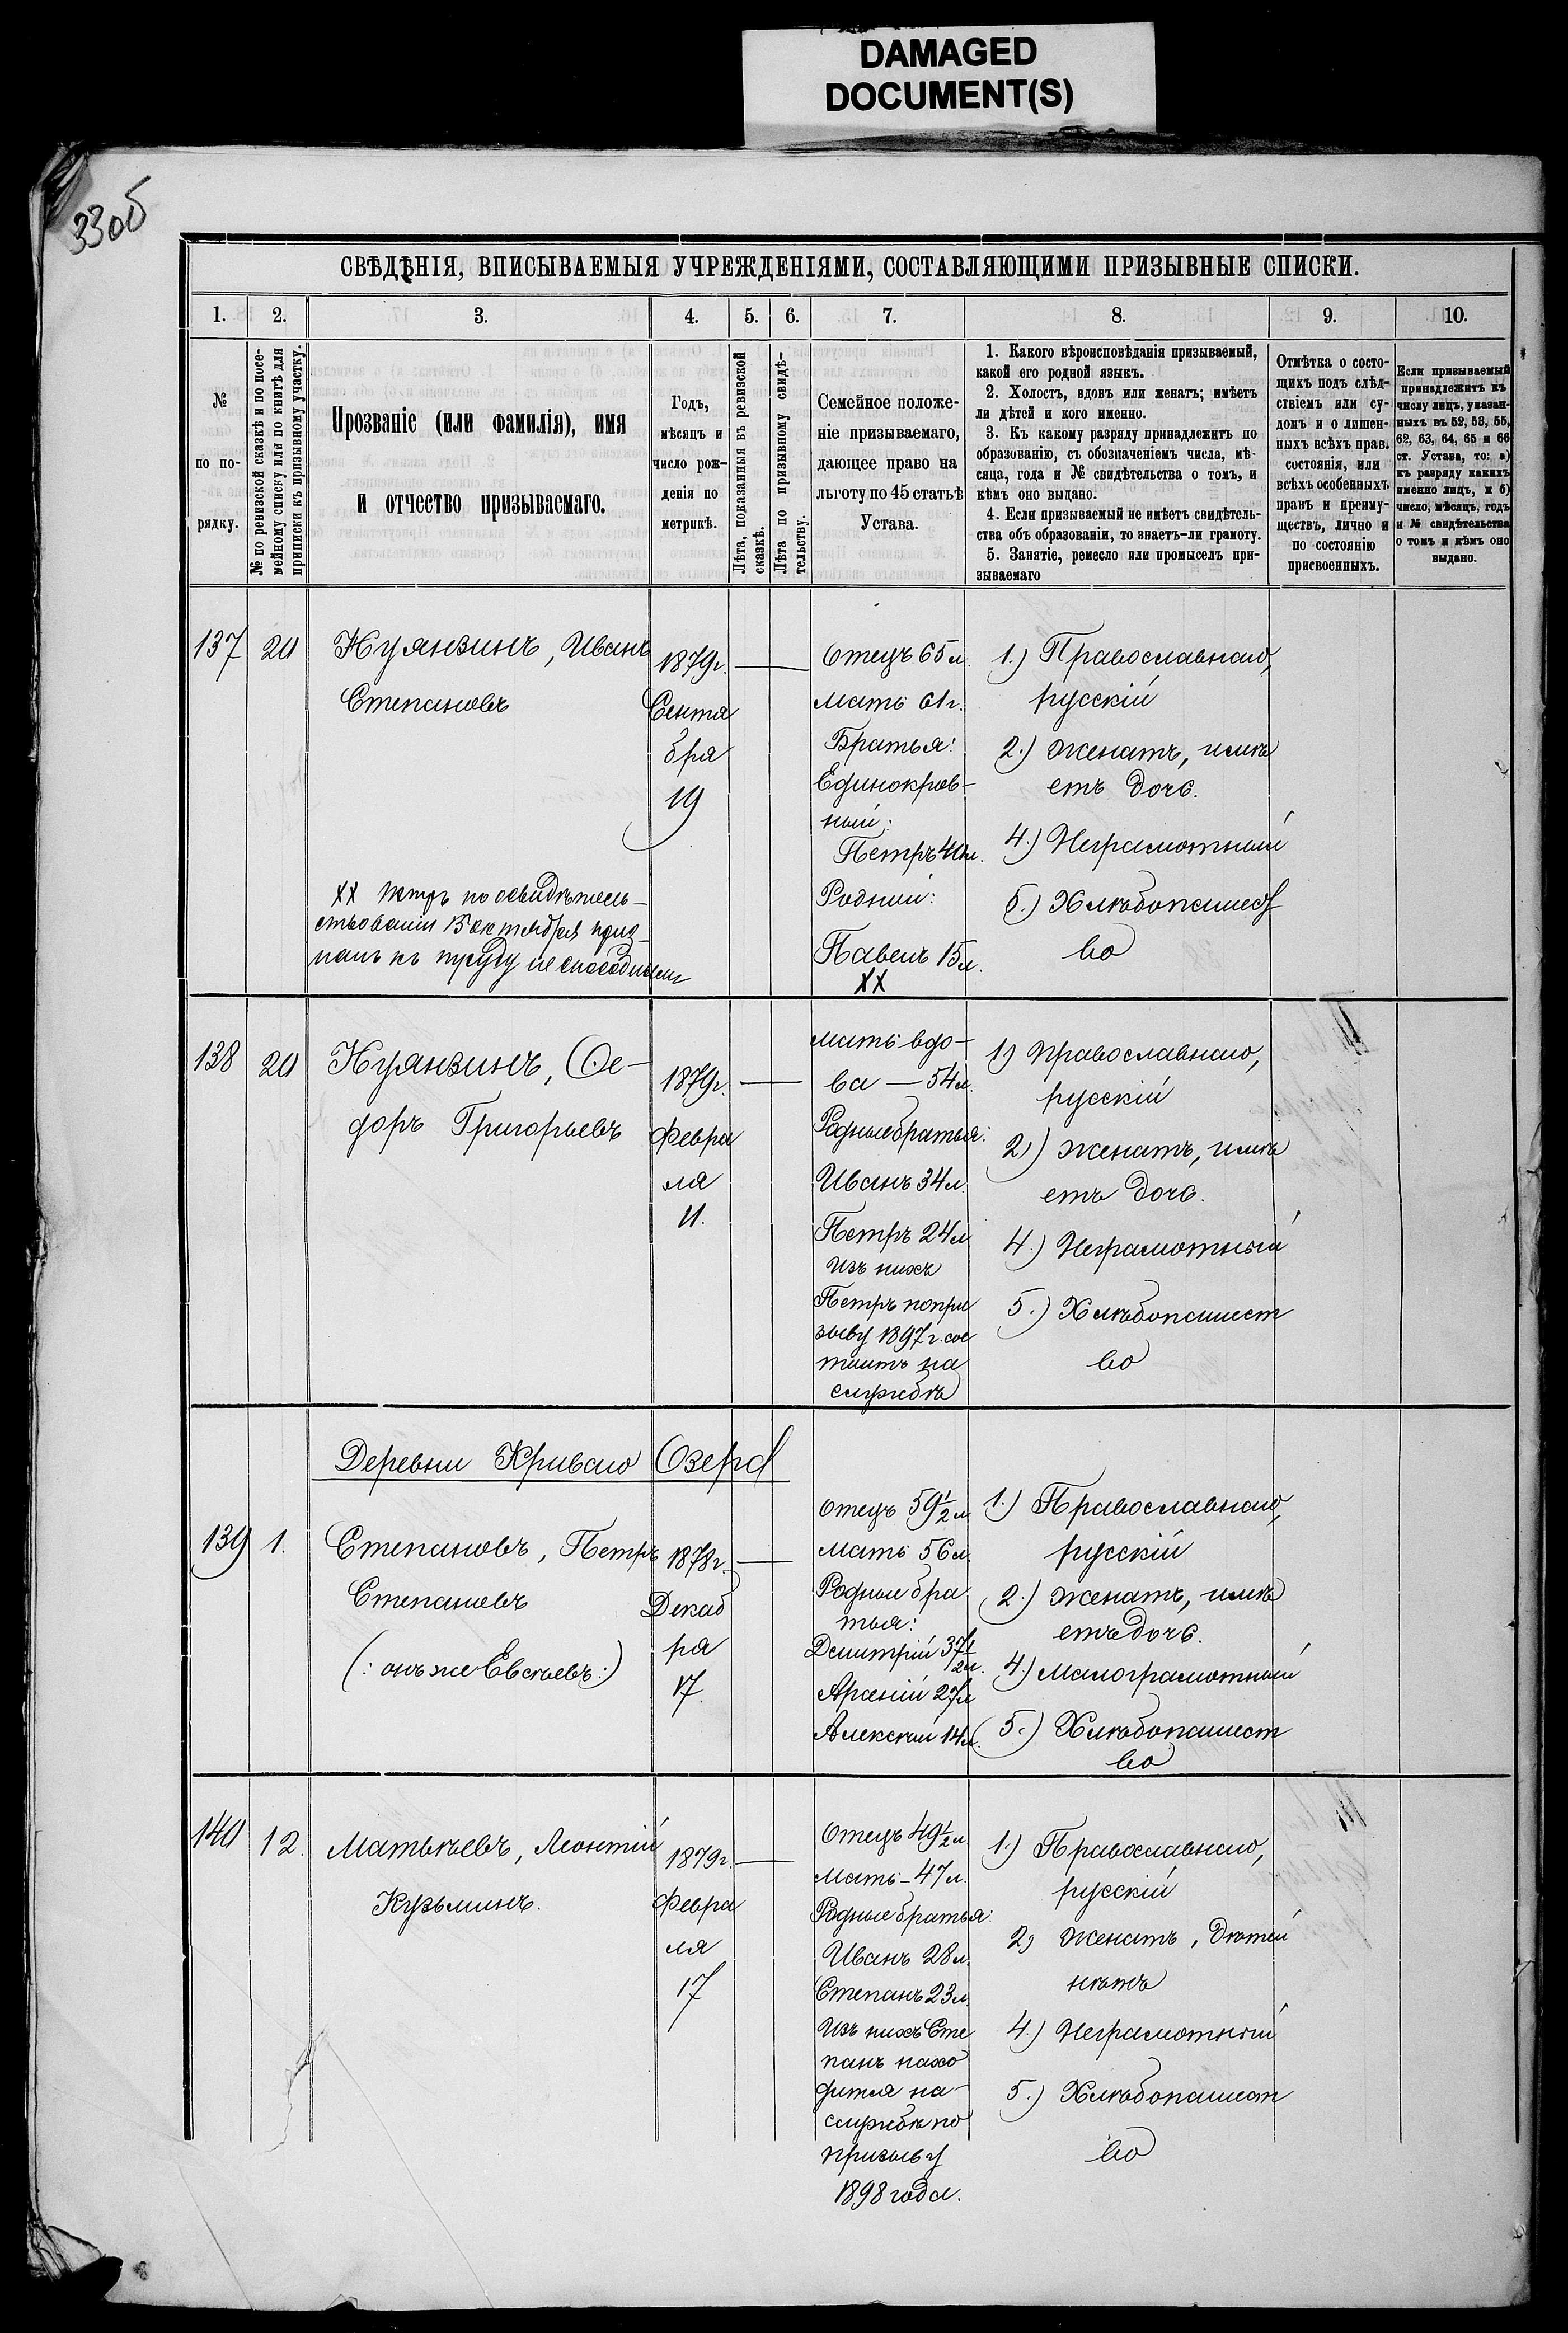 DAMAGED
DOCUMENT(S)
33об
СВѢДѢНІЯ, ВПИСЫВАЕМЫЯ УЧРЕЖДЕНІЯМИ, СОСТАВЛЯЮЩИМИ ПРИЗЫВНЫЕ СПИСКИ.
1. 2. 3. 4. 5. 6. 7. 8. 9. 10.
№
по по-
рядку.
№ по ревизской сказкѣ и по посе-
мейному списку или по книгѣ для
приписки къ призывному участку.
Прозваніе (или фамилія), имя
и отчество призываемаго.
Годъ,
мѣсяцъ и
число рож-
денія по
метрикѣ.
Лѣта, показанныя въ ревизской
сказкѣ.
Лѣта по призывному свидѣ-
тельству.
Семейное положе-
ніе призываемаго,
дающее право на
льготу по 45 статьѣ
Устава.
1. Какого вѣроисповѣданія призываемый,
какой его родной языкъ.
2. Холостъ, вдовъ или женатъ; имѣетъ
ли дѣтей и кого именно.
3. Къ какому разряду принадлежитъ по
образованію, съ обозначеніемъ числа, мѣ-
сяца, года и № свидѣтельства о томъ, и
кѣмъ оно выдано.
4. Если призываемый не имѣетъ свидѣтель-
ства объ образованіи, то знаетъ-ли грамоту.
5. Занятіе, ремесло или промыселъ при-
зываемаго
Отмѣтка о состо-
щихъ подъ слѣд-
ствіемъ или су-
домъ и о лишен-
ныхъ всѣхъ прав.
состоянія, или
всѣхъ особенныхъ
правъ и преиму-
ществъ, лично и
по состоянію
присвоенныхъ.
Если призываемый
принадлежитъ къ
числу лицъ, указан-
ныхъ въ 52, 53, 55,
62, 63, 64, 65 и 66
ст. Устава, то: а)
къ разряду какихъ
именно лицъ, и б)
число, мѣсяцъ, годъ
и № свидѣтельства
о томъ и кѣмъ оно
выдано.
137 20
Нуянзинъ, Иванъ
Степановъ
1879г.
Сентя
бря
19
Отецъ 65 л.
мать 61 г.
Братья:
Единокров-
ный:
Петръ 40 л.
Родный:
Павелъ 15 л.
ХХ
1.) Православнаго,
русскій
2.) женатъ, имѣ
етъ дочь.
4.) Неграмотный
5.) Хлѣбопашест
во
ХХ Петръ по освидѣтель-
ствованіи 15 октября приз-
нанъ къ труду не способнымъ
138 20
Нуянзинъ, Ѳе-
доръ Григорьевъ
1879г.
Февра
ля
11.
мать вдо-
ва — 54 л.
Родные братья:
Иванъ 34 л.
Петръ 24 л
Изъ нихъ
Петръ по при
зыву 1897 г. сос
тоитъ на
службѣ
1) православнаго,
русскій
2) женатъ, имѣ
етъ дочь.
4.) Неграмотный
5.) Хлѣбопашест
во
Деревни Криваго Озера
139 1.
Степановъ, Петръ
Степановъ
(: онъ же Евсѣевъ :)
1878г.
Декаб
ря
17.
Отецъ 59 1/2 л.
мать 56 л.
Родные бра
тья:
Дмитрій 37 1/2 л.
Арсеній 27 л
Алексѣй 14 л.
1.) Православнаго,
русскій
2.) женатъ, имѣ
етъ дочь.
4.) Малограмотный
5.) Хлѣбопашест
во
140 12.
Матвѣевъ, Леонтій
Кузьминъ.
1879г.
Февра
ля
17
Отецъ 49 1/2 л.
Мать - 47 л.
Родные братья:
Иванъ 28 л.
Степанъ 23 л.
Изъ нихъ Сте
панъ нахо
дится на
службѣ по
призыву
1898 года.
1.) Православнаго,
русскій
2) женатъ, дѣтей
нѣтъ
4.) Неграмотный
5.) Хлѣбопашест
во